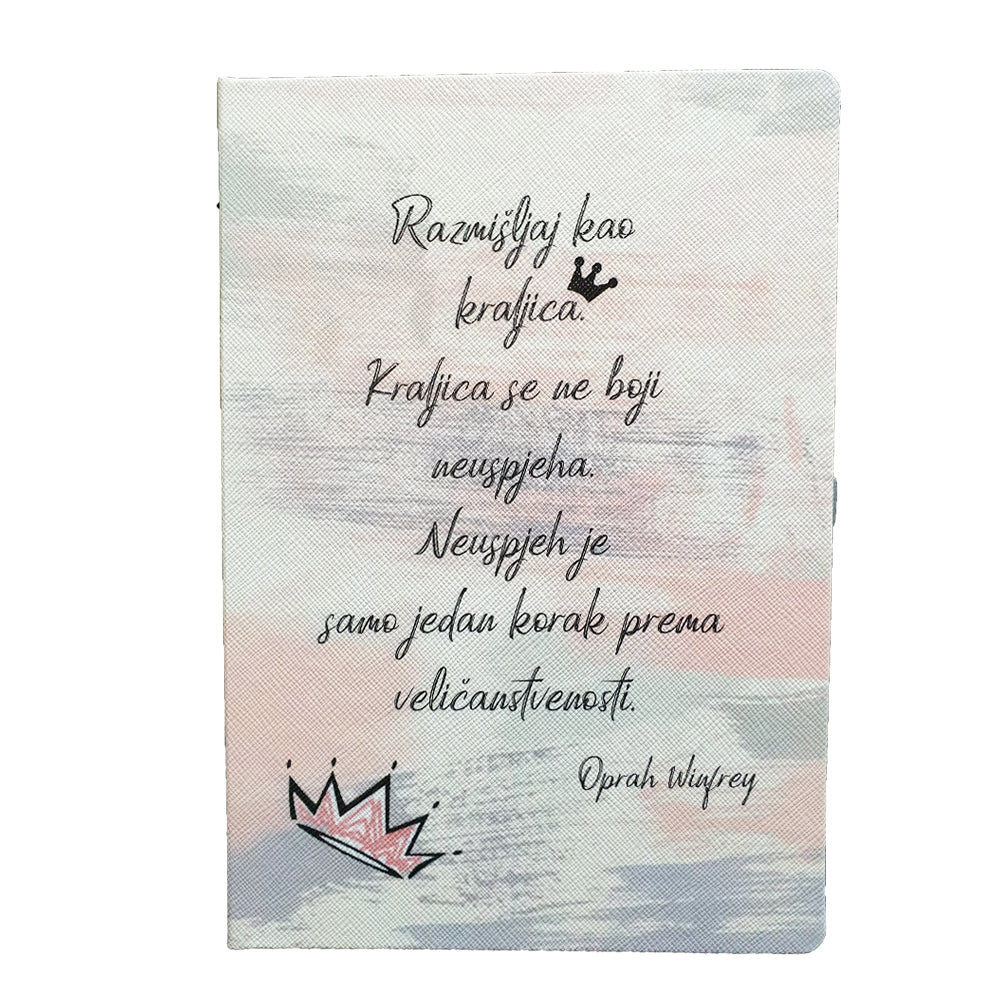 Razmišljaj kao
kraljica.
Kraljica se ne boji
neuspjeha.
Neuspjeh je
samo jedan korak prema
veličanstvenosti.
Oprah Winfrey